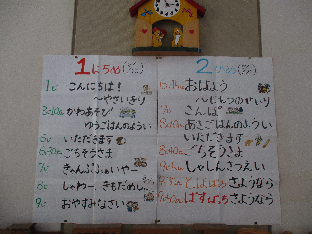 1にちめ
1じ こんにちは!
~やさいきり
かわあそび
ゆうごはんのようい
5じ いただきます
ごちそうさま
7じ きゃんぷふぁいやー
8じ しゃわー、きもだめし
9じ おやすみなさい
2にちめ
おはよう
~にもつのせいり
7じ さんぽ
あさごはんのようい
いただきます
ごちそうさま
しゃしんさつえい
さようなら
ばすはっち さようなら